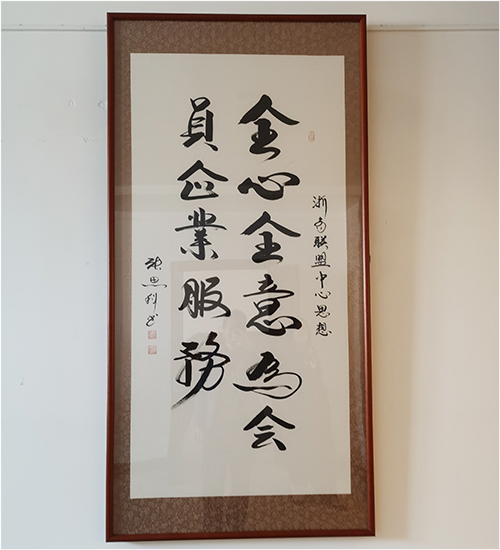 浙商联盟中心思想
全心全意為会
員企業服務
思利书